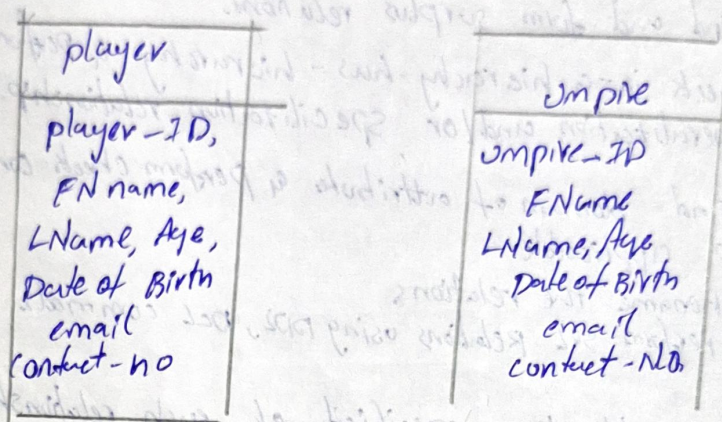 player
player_ID,
FN name,
LName, Age,
Date of Birth
email
contact-no
Umpire
Umpire_ID
FName
LName, Age
Date of Birth
email
contact-No.